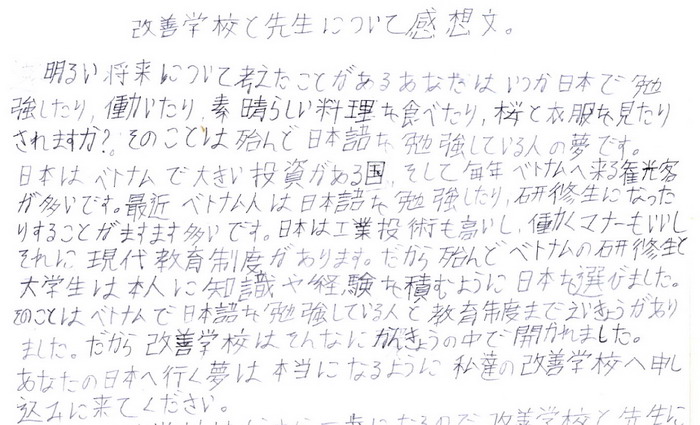 改善学校と先生について感想文。
明るい将来について考えたことがあるあなたはいつか日本で勉
強したり、働いたり、素晴らしい料理を食べたり、桜と衣服を見たり
されますか?そのことは殆んど日本語を勉強している人の夢です。
日本はベトナムで大きい投資がある国、そして毎年ベトナムへ来る観光客
が多いです。最近ベトナム人は日本語を勉強したり、研修生になった
りすることがますます多いです。日本は工業技術も高いし、働くマナーもいいし、
それに現代教育制度があります。だから殆んどベトナムの研修生と
大学生は本人に知識や経験を積むように日本を選びました。
そのことはベトナムで日本語を勉強している人と教育制度までえいきょうがあり
ました。だから改善学校はそんなにかんきょうの中で開かれました。
あなたの日本へ行く夢は本当になるように私達の改善学校へ申し
込みに来てください。
一歩になるので改善学校と先生に